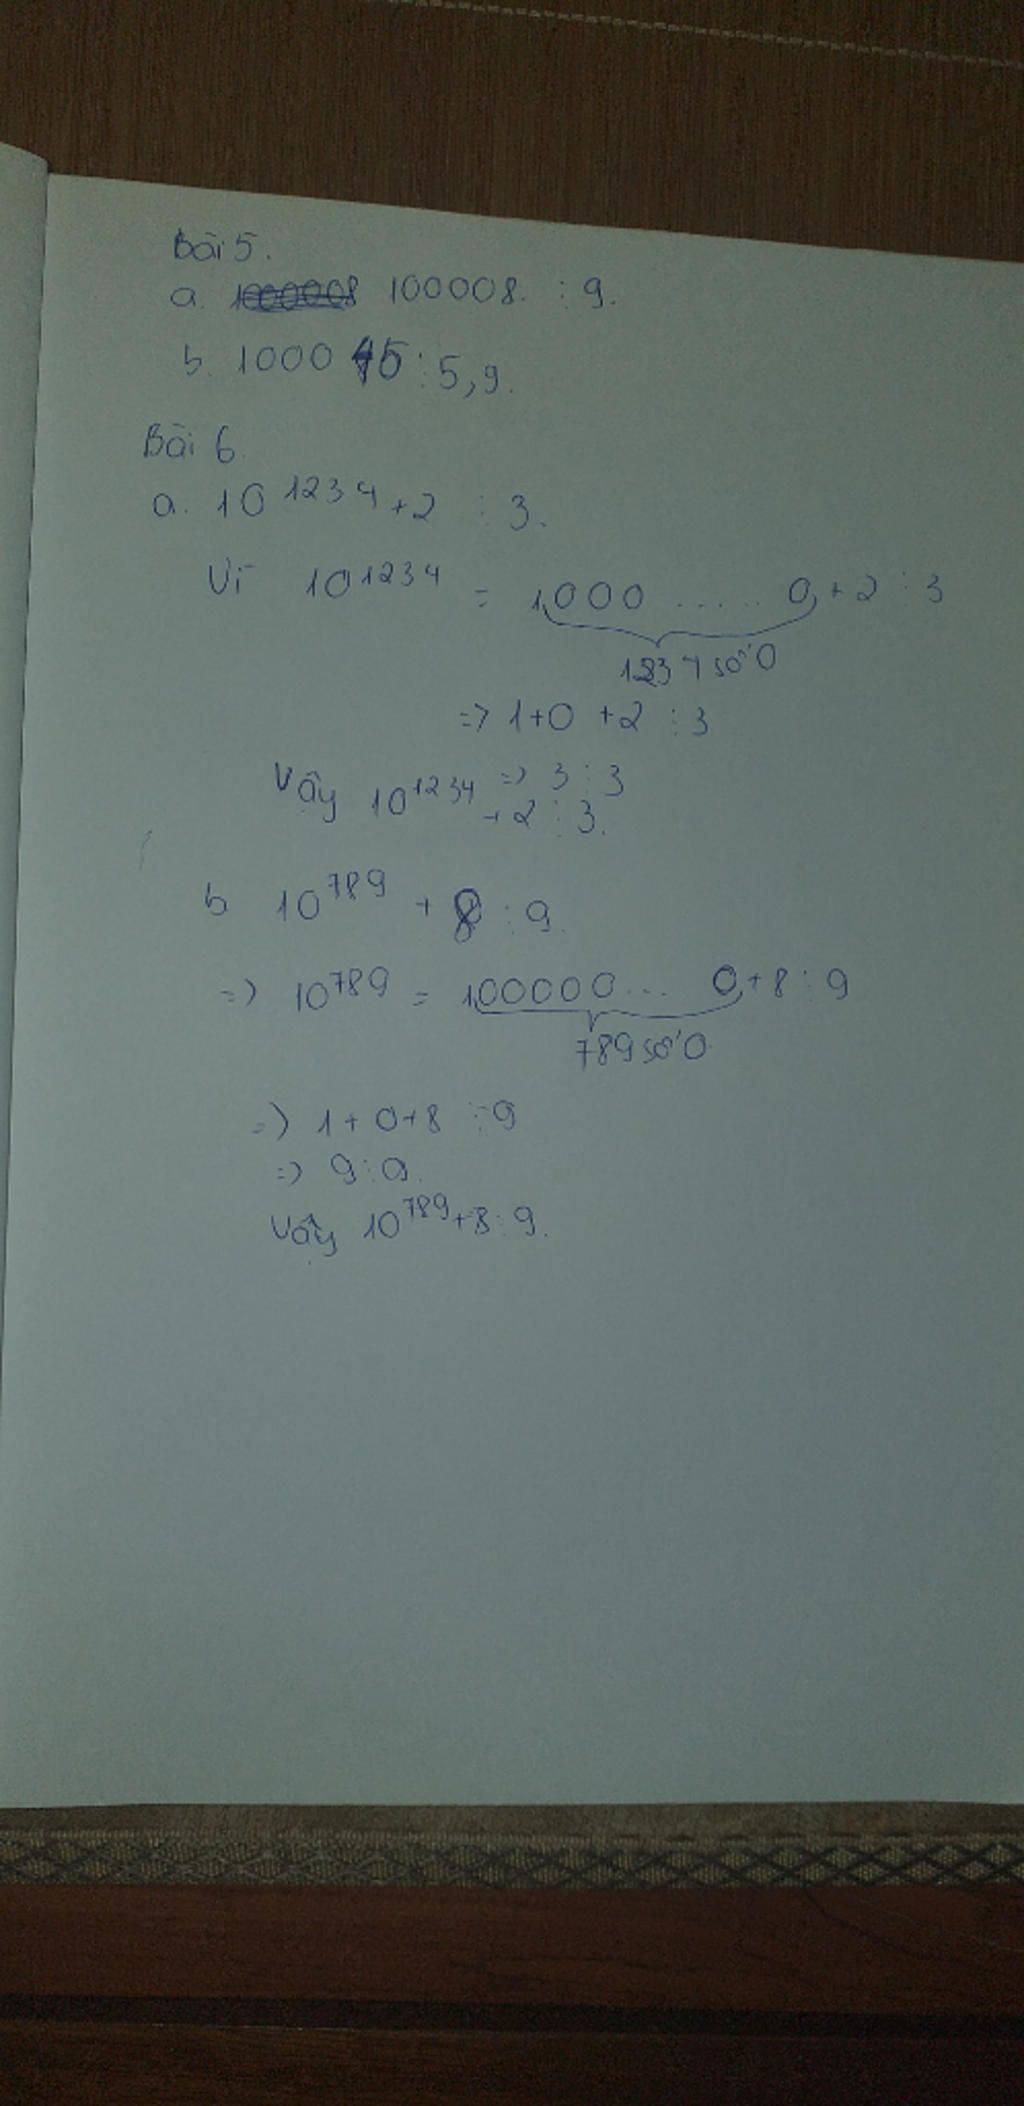 Bài 5.
a. 100008 ⋮ 9.
b. 1000 45 ⋮ 5,9.
Bài 6.
a. 10^1234 + 2 ⋮ 3.
Vì 10^1234 = 1000 ..... 0 + 2 ⋮ 3
1234 số 0
=> 1+0 +2 ⋮ 3
=> 3 ⋮ 3
Vậy 10^1234 + 2 ⋮ 3.
b 10^789 + 8 ⋮ 9.
=> 10^789 = 100000... 0 + 8 ⋮ 9
789 số 0
=> 1 + 0 + 8 ⋮ 9
=> 9 ⋮ 9.
Vậy 10^789 + 8 ⋮ 9.